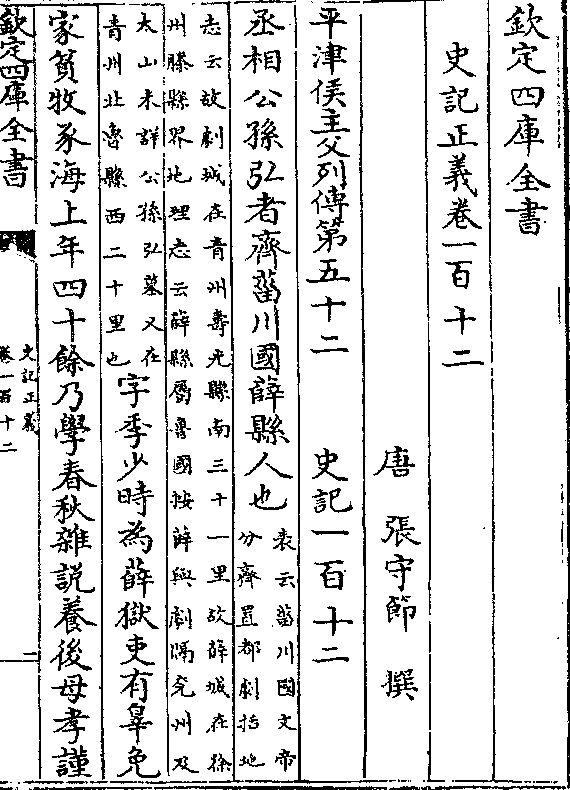 欽定四庫全書
史記正義卷一百十二
唐 張守節 撰
平津侯主父列傳第五十二 史記一百十二
丞相公孫弘者齊菑川國薛縣人也
表云菑川國文帝
分齊置都劇括地
志云故劇城在青州壽光縣南三十一里故薛城在徐
州滕縣界地理志云薛縣屬魯國按薛與劇隔兖州及
太山未詳公孫弘墓又在
青州北魯縣西二十里也
字季少時為薛獄吏有辠免
家貧牧豕海上年四十餘乃學春秋雜說養後母孝謹
欽定四庫全書
史記正義
卷一百十二